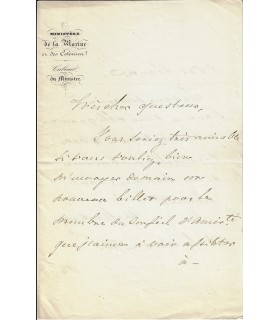 MINISTÈRE
de la Marine
et des Colonies.
Cabinet
du Ministre.
Très cher questeur,
Vous seriez très aimable
si vous vouliez bien
m'envoyer demain un
nouveau billet pour le
membre du Conseil d'Amirté
que j'aimerais à voir assister
à —